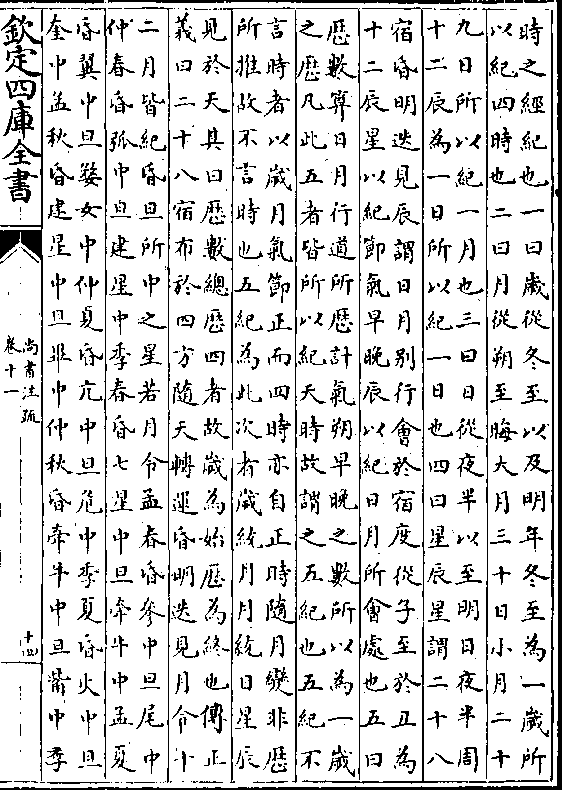 時之經紀也一曰歲從冬至以及明年冬至為一歲所
以紀四時也二曰月從朔至晦大月三十日小月二十
九日所以紀一月也三曰日從夜半以至明日夜半周
十二辰為一日所以紀一日也四曰星辰星謂二十八
宿昏明迭見辰謂日月別行會於宿度從子至於丑為
十二辰星以紀節氣早晚辰以紀日月所會處也五曰
歷數算日月行道所歷計氣朔早晚之數所以為一歲
之歷凡此五者皆所以紀天時故謂之五紀也五紀不
言時者以歲月氣節正而四時亦自正時隨月變非歷
所推故不言時也五紀為此次者歲統月月統日星辰
見於天其曰歷數總歷四者故歲為始歷為終也傳正
義曰二十八宿布於四方隨天轉運昏明迭見月令十
二月皆紀昏旦所中之星若月令孟春昏參中旦尾中
仲春昏弧中旦建星中季春昏七星中旦牽牛中孟夏
昏翼中旦婺女中仲夏昏亢中旦危中季夏昏火中旦
奎中孟秋昏建星中旦畢中仲秋昏牽牛中旦觜中季
欽定四庫全書
尚書注疏
卷十一
十四